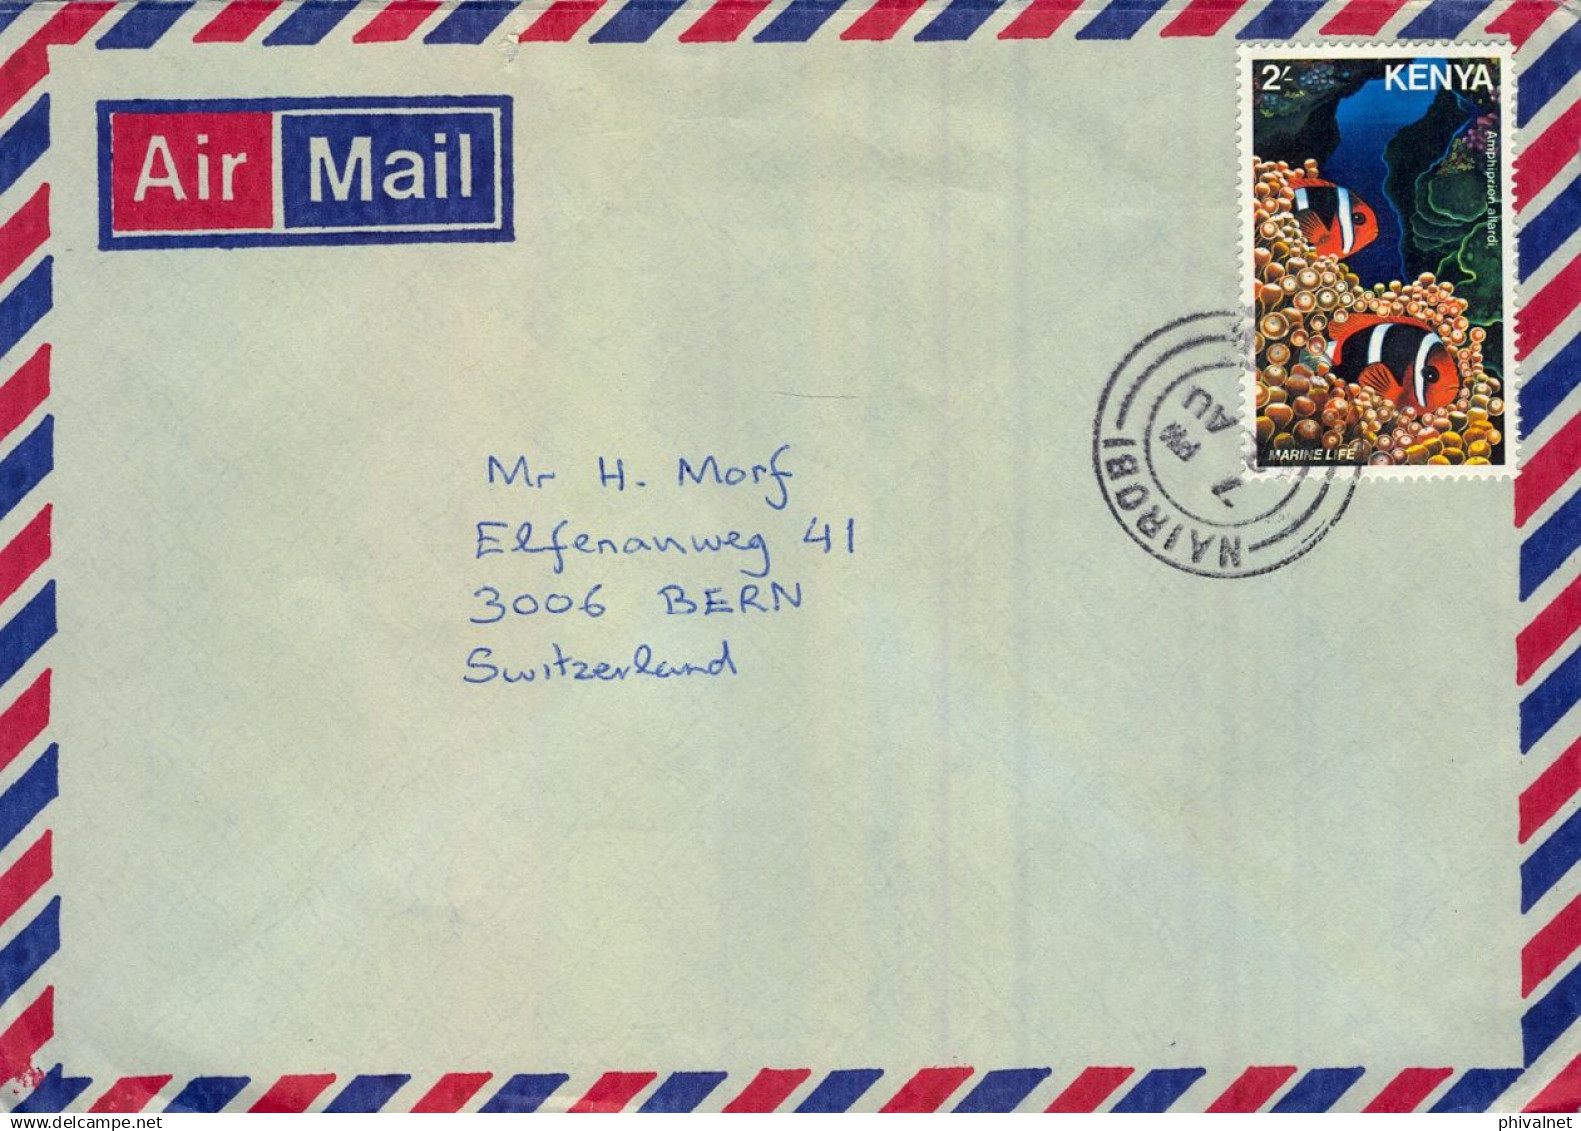 Air Mail
2/- KENYA
Amphiprion allardi
MARINE LIFE
NAIROBI
7 PM
AU
Mr H. Morf
Elfenauweg 41
3006 BERN
Switzerland
phivalnet